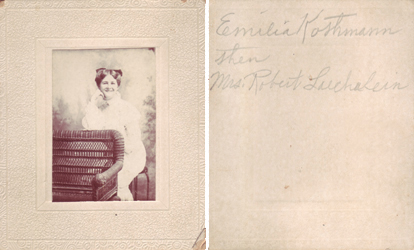 Emilia Kothmann
then
Mrs. Robert